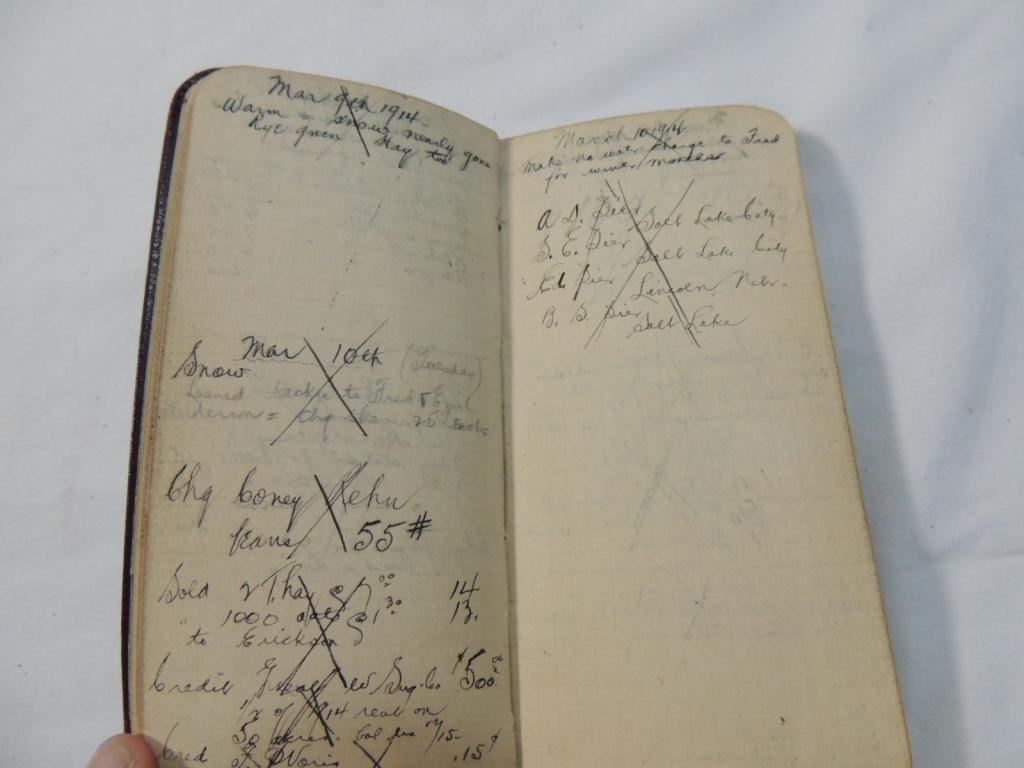 Mar 9th 1914
Warm = snow nearly gone
Rye green Hay too
Mar 10th (Tuesday)
Snow
Loaned to Fred &
Anderson =
Chg Coney
55#
Sold 2 T hay @ 7.00 14
" 1000 oats @ 1.30 13.
to Erickson
Credit Sug. Co $500.00
1/2 of 1914 rent on
50 acres bal due
Cred .15¢
March 10 1914
Make no water charge to Fred
for winter months
A D. Pier Salt Lake City
S. E. Pier Salt Lake City
Ed Pier Lincoln, Nebr.
B. S. Pier
Salt Lake